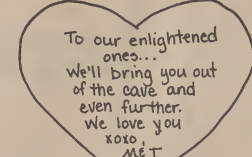 To our enlightened
ones...
We'll bring you out
of the cave and
even further.
We love you
xoxo,
M&T